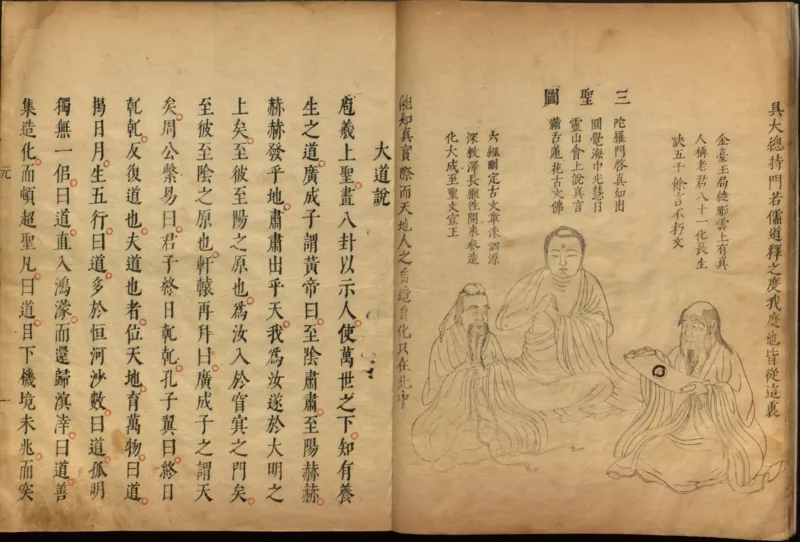 具大總持門若儒道釋之度我度他皆從這裏
三聖圖
金臺玉局繞彤雲上有真
人稱老君八十一化長生
訣五千餘言不朽文
陀羅門啓真如出
圓覺海中光慧日
靈山會上說真言
滿舌蓮花古文佛
六經刪定古文章洙泗源
深教澤長繼往開來參造
化大成至聖文宣王
能知真實際而天地人之自造自化只在此中
大道說
庖羲上聖畫八卦以示人使萬世之下知有養
生之道廣成子謂黃帝曰至陰肅肅至陽赫赫
赫赫發乎地肅肅出乎天我爲汝遂於大明之
上矣至彼至陽之原也爲汝入於窅冥之門矣
至彼至陰之原也軒轅再拜曰廣成子之謂天
矣周公繫易曰君子終日乹乹孔子翼曰終日
乹乹反復道也大道也者位天地育萬物曰道
揭日月生五行曰道多於恒河沙數曰道孤明
獨無一侶曰道直入鴻濛而還歸溟涬曰道善
集造化而頓超聖凡曰道目下機境未兆而突
元
一